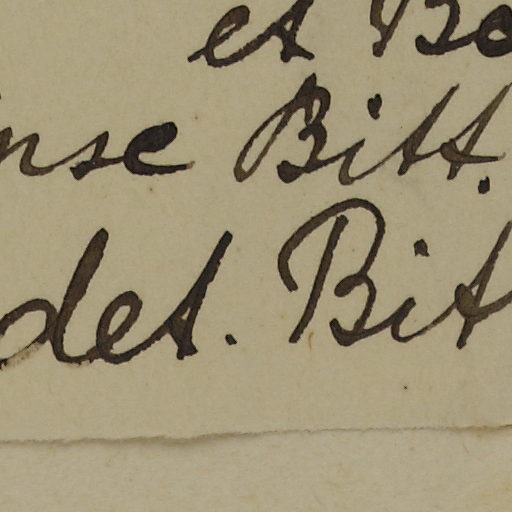 et Bo
nse Bitt.
det. Bit